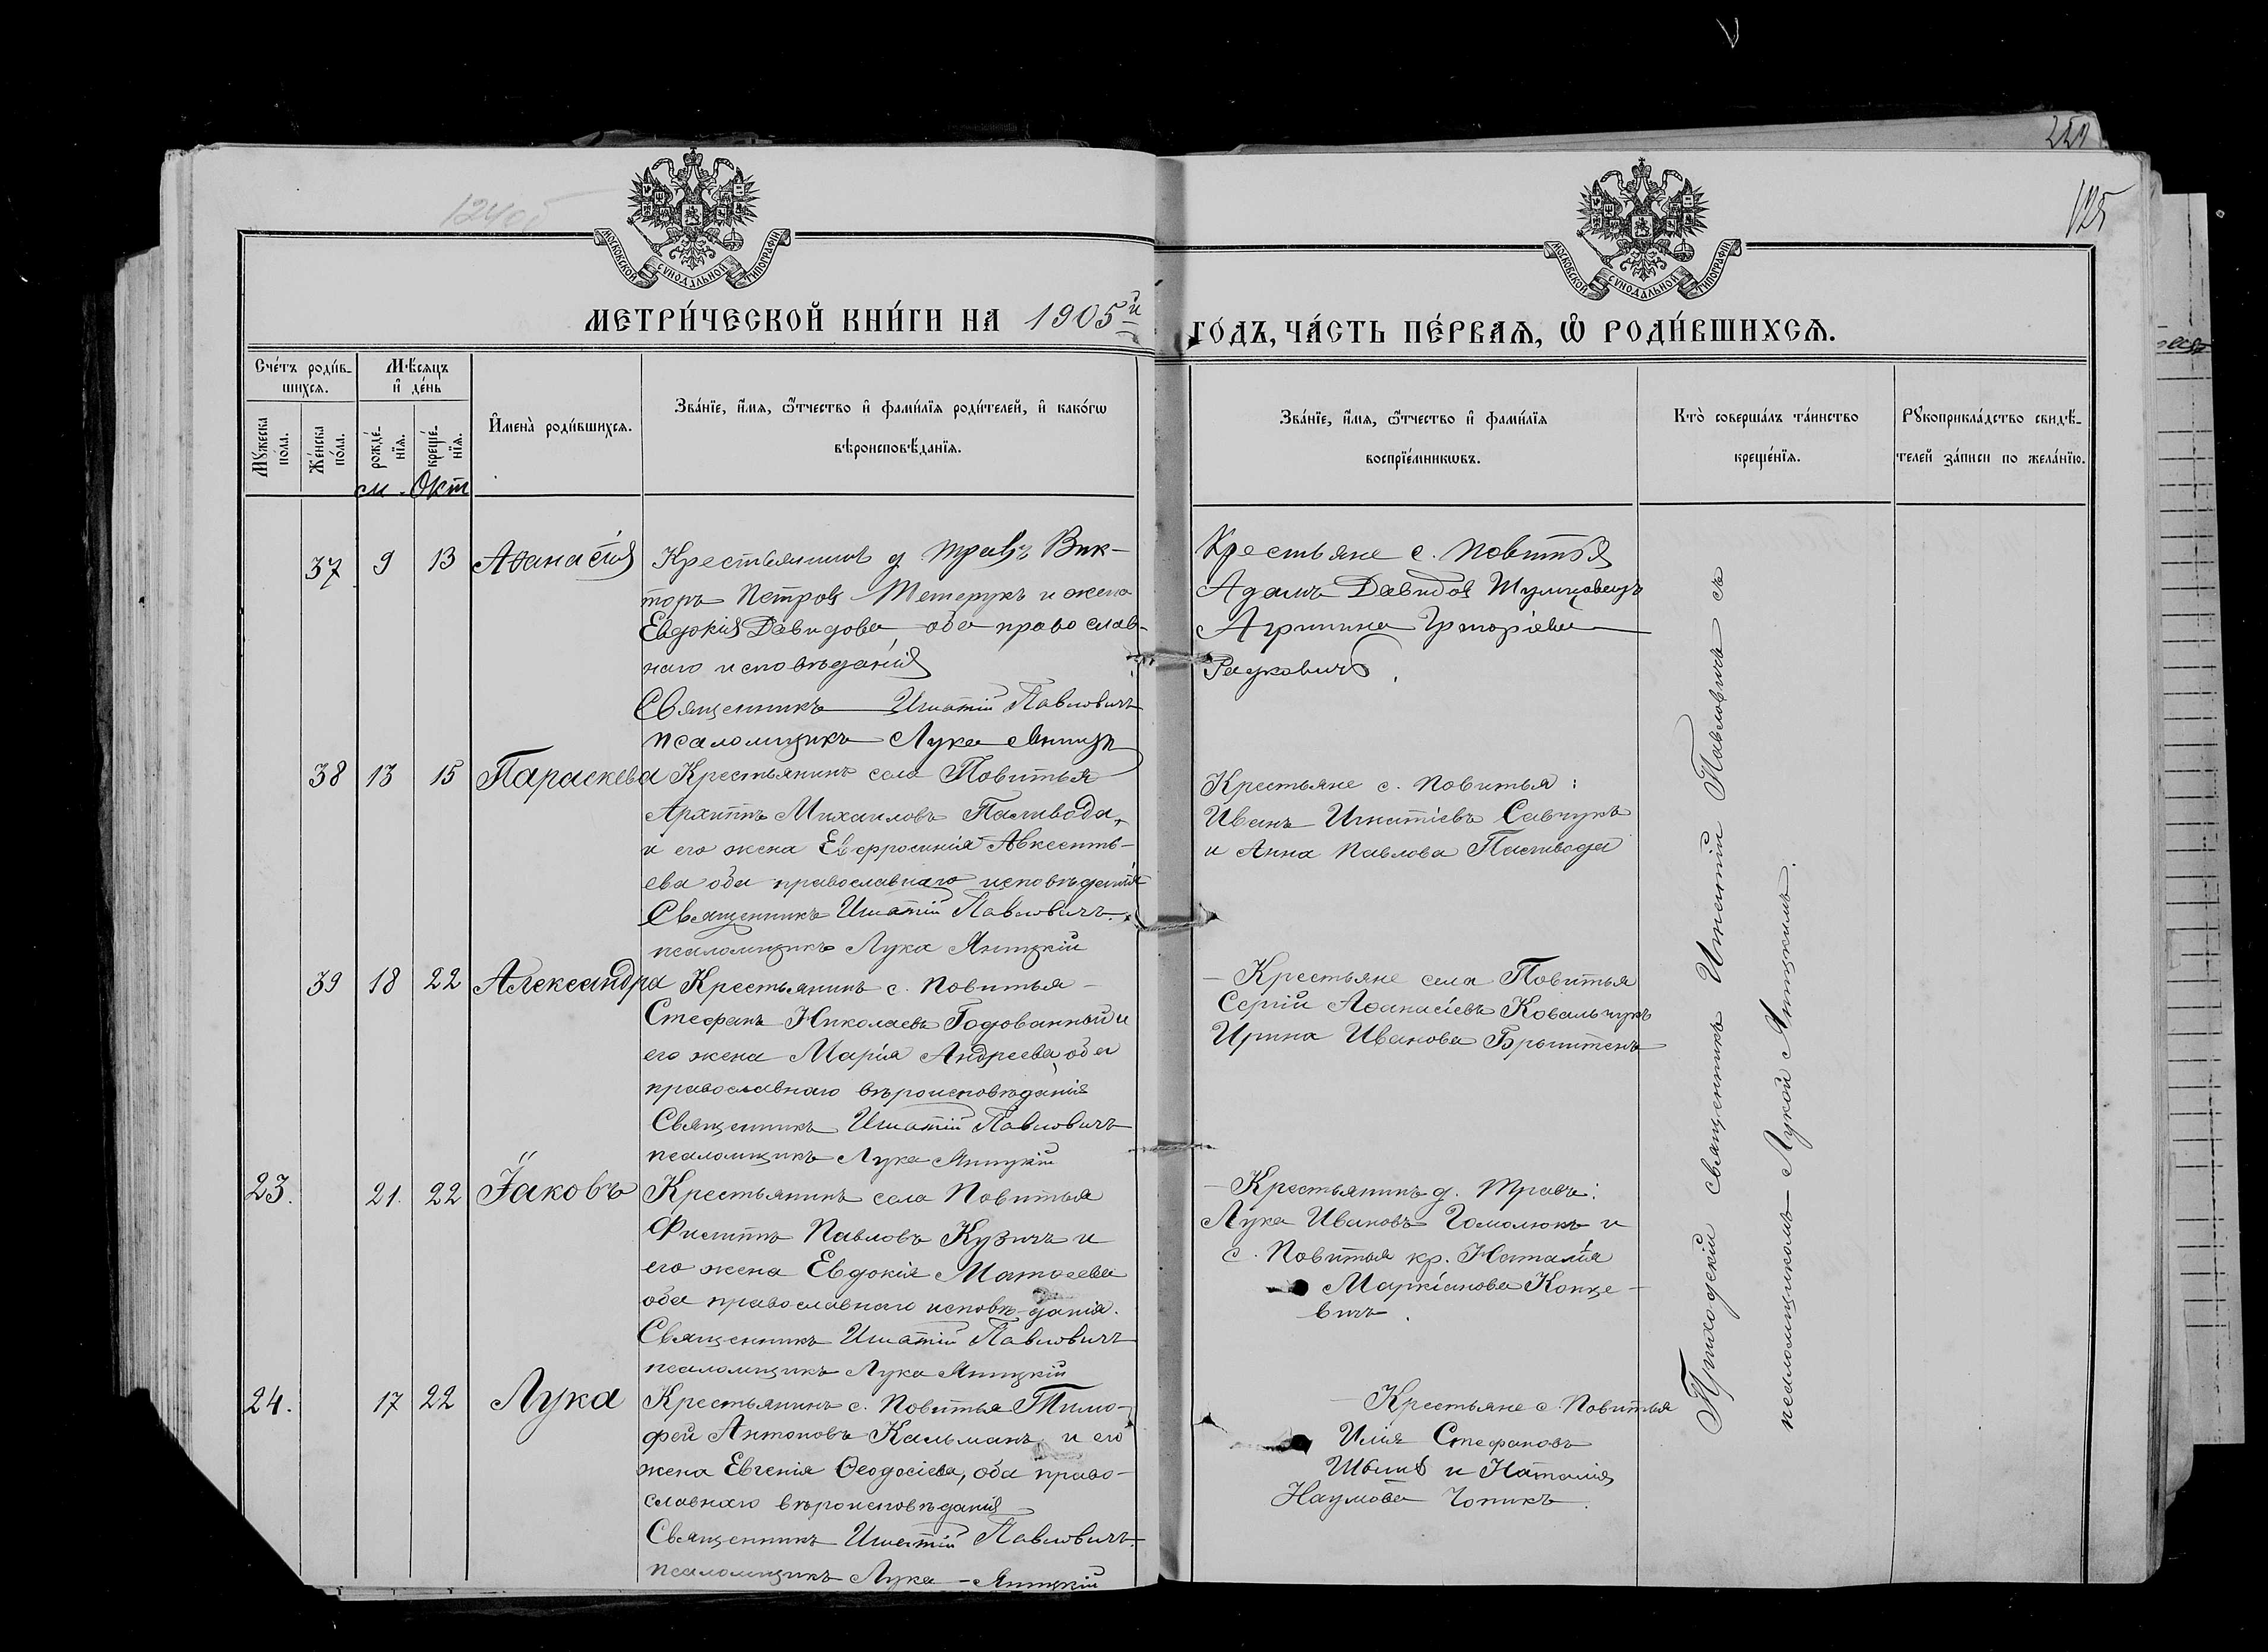 250
125
124об
МОСКОВСКОЙ СѴНОДАЛЬНОЙ ТИПОГРАФІИ
МОСКОВСКОЙ СѴНОДАЛЬНОЙ ТИПОГРАФІИ
МЕТРИ́ЧЕСКОЙ КНИ́ГИ НА 1905й
ГО́ДЪ, ЧА́СТЬ ПЕ́РВАЯ, Ѡ҆ РОДИ́ВШИХСЯ.
Сче́тъ роди́в-
шихся.
Мѣ́сяцъ
и҆ де́нь
Мꙋ́жеска по́ла.
Же́нска по́ла.
рожде́-нїя.
креще́-нїя.
И҆мена̀ роди́вшихся.
Зва́нїе, и҆́мя, ѻ҆́тчество и҆ фами́лїя роди́телей, и҆ како́гѡ
вѣроисповѣ́данїя.
Зва́нїе, и҆́мя, ѻ҆́тчество и҆ фами́лїя
воспрїе́мникѡвъ.
Кто̀ соверша́лъ та́инство
креще́нїя.
Рꙋкоприкла́дство свидѣ́-
телей за́писи по жела́нїю.
Окт
37 9 13 Аѳанасія
Крестьянинъ д. Травъ Вик-
торъ Петровъ Тетерукъ и жена
Евдокія Давидова, оба православ-
наго исповѣданія
Священникъ Игнатій Павловичъ
псаломщикъ Лука
Крестьяне с. Повитья
Адамъ Давидов
Агрипина Григоріева
38 13 15 Параскева
Крестьянинъ села Повитья
Архиппъ Михаиловъ Паливода,
и его жена Евфросинія Авксенть-
ева оба православнаго исповѣданія
Священникъ Игнатій Павловичъ.
псаломщикъ Лука Яницкій
Крестьяне с. Повитья:
Иванъ Игнатіевъ Савчукъ
и Анна Павлова Паливода
39 18 22 Александра
Крестьянинъ с. Повитья
Стефанъ Николаевъ Годованный и
его жена Марія Андреева, оба
православнаго вѣроисповѣданія
Священникъ Игнатій Павловичъ
псаломщикъ Лука Яницкій
Крестьяне села Повитья
Сергій Аѳанасіевъ Ковальчукъ
Ирина Иванова
23. 21. 22 Іаковъ
Крестьянинъ села Повитья
Филиппъ Павловъ Кузичъ и
его жена Евдокія Матѳеева
оба православнаго исповѣданія.
Священникъ Игнатій Павловичъ
псаломщикъ Лука Яницкій
Крестьянинъ д. Травъ:
Лука Ивановъ Гомолюкъ и
с. Повитья кр. Наталія
Маркіанова Конце-
вичъ.
24. 17 22 Лука
Крестьянинъ с. Повитья Тимо-
фей Антоновъ Кальманъ и его
жена Евгенія Ѳеодосіева, оба право-
славнаго вѣроисповѣданія
Священникъ Игнатій Павловичъ
псаломщикъ Лука Яницкій
Крестьяне с. Повитья
Илія Стефановъ
и Наталія
Наумова
Приходскій священникъ Игнатій Павловичъ съ
псаломщикомъ Лукой Яницкимъ.